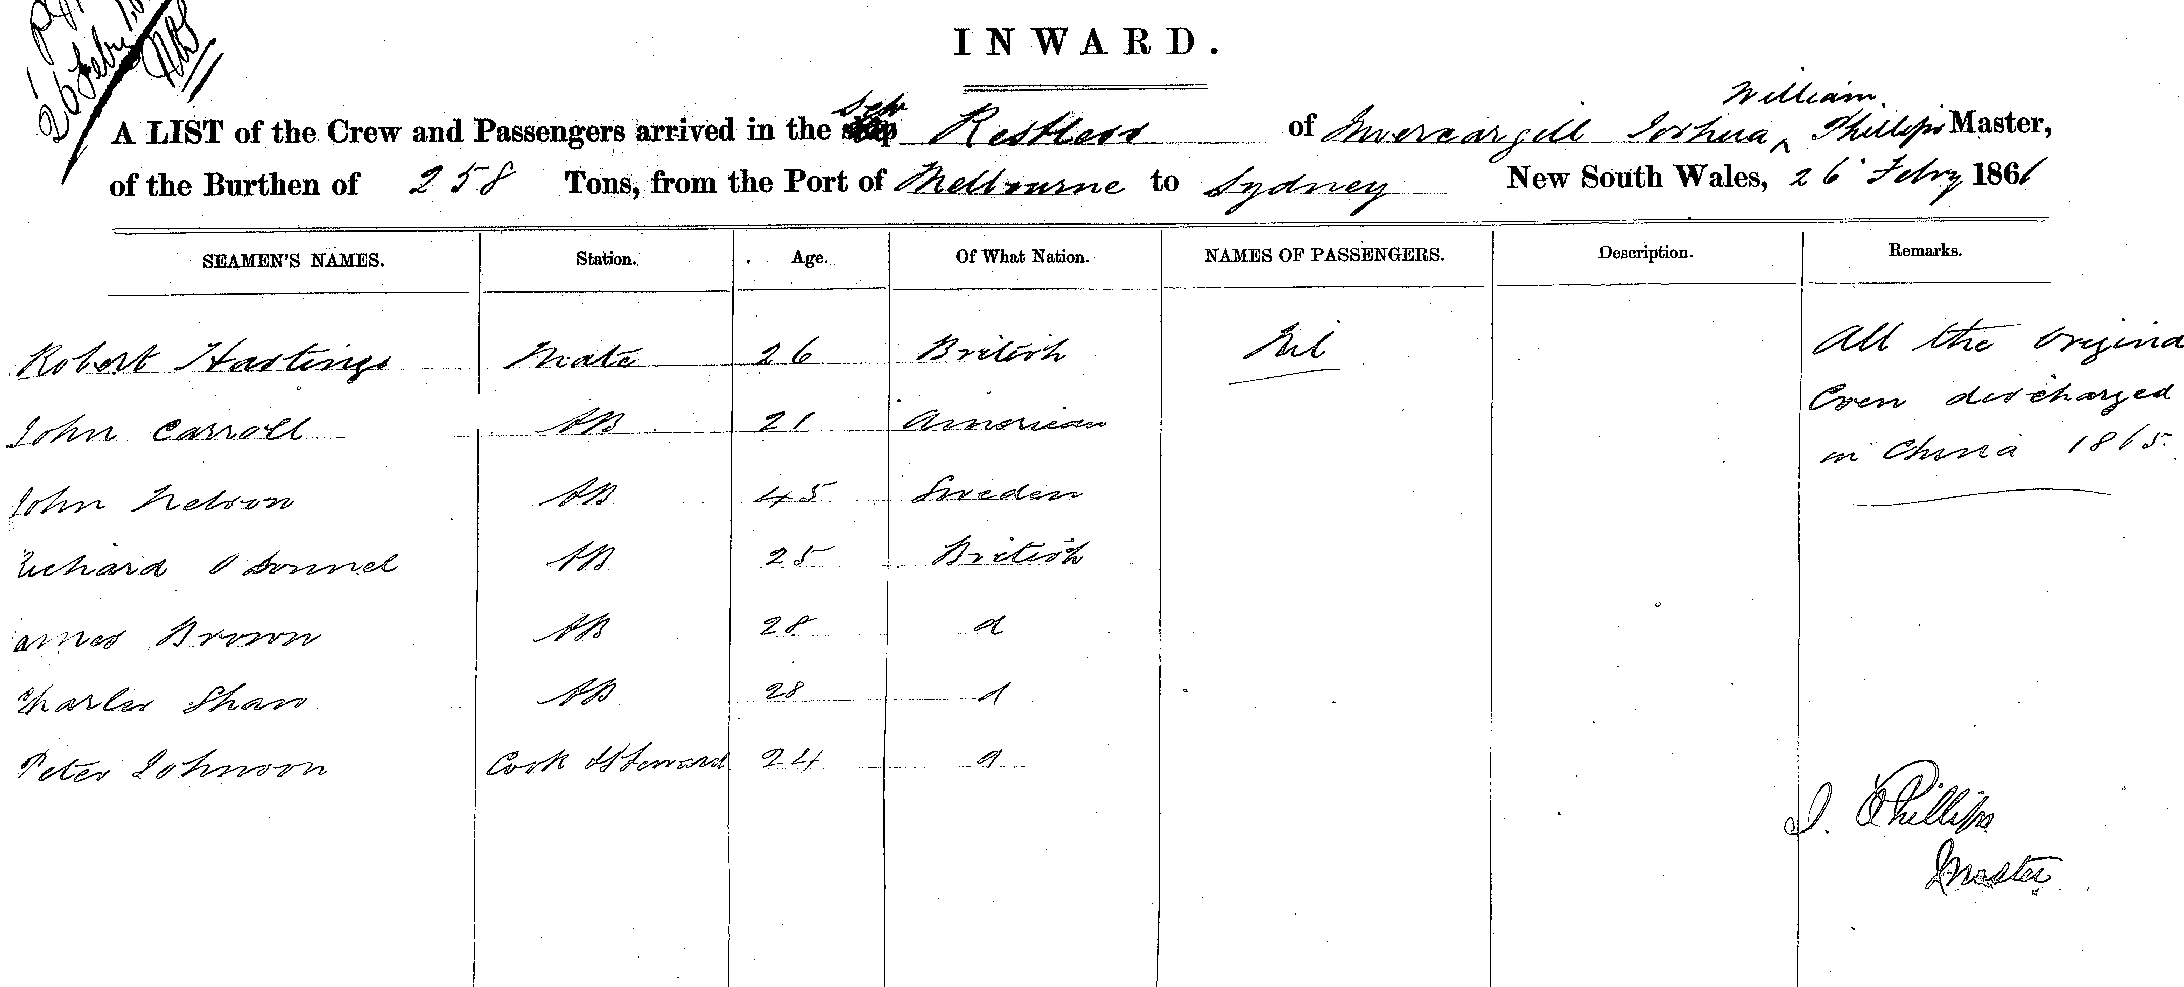 26 Feby
INWARD.
William
A LIST of the Crew and Passengers arrived in the Sch Restless of Invercargill Joshua ^ Phillips Master,
of the Burthen of 258 Tons, from the Port of Melbourne to Sydney New South Wales, 26 Febry 1866
SEAMEN'S NAMES. Station. Age. Of What Nation. NAMES OF PASSENGERS. Description. Remarks.
Robert Hastings Mate 26 British Nil All the Origina
John Carroll AB 21 American Crew discharged
John Nelson AB 45 Sweden in China 1865.
Richard O Donnel AB 25 British
ames Brown AB 28 d
Charles Shaw AB 28 d
Peter Johnson Cook & Steward 24 d
J. Phillips
Master